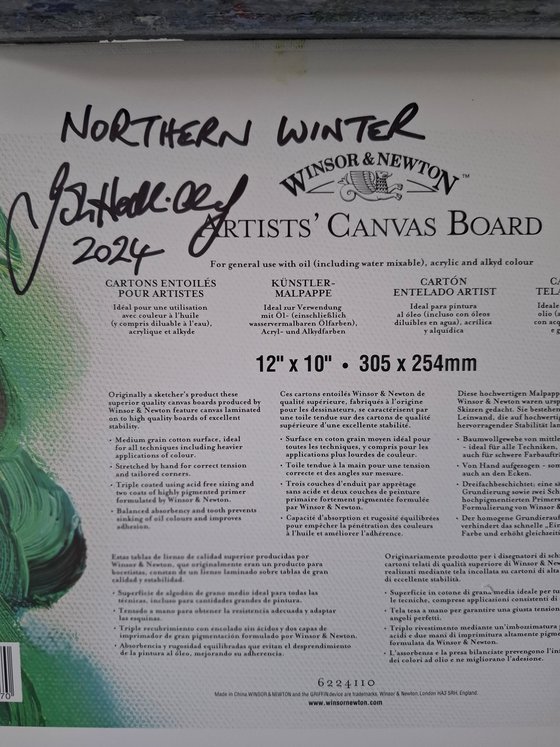 NORTHERN WINTER
2024
WINSOR & NEWTON™
ARTISTS' CANVAS BOARD
For general use with oil (including water mixable), acrylic and alkyd colour
CARTONS ENTOILÉS
POUR ARTISTES
Idéal pour une utilisation
avec couleur à l'huile
(y compris diluable à l'eau),
acrylique et alkyde
KÜNSTLER-
MALPAPPE
Ideal zur Verwendung
mit Öl- (einschließlich
wasservermalbaren Ölfarben),
Acryl- und Alkydfarben
CARTÓN
ENTELADO ARTIST
Ideal para pintura
al óleo (incluso con óleos
diluibles en agua), acrílica
y alquídica
12" x 10" • 305 x 254mm
Originally a sketcher's product these
superior quality canvas boards produced by
Winsor & Newton feature canvas laminated
on to high quality boards of excellent
stability.
• Medium grain cotton surface, ideal
for all techniques including heavier
applications of colour.
• Stretched by hand for correct tension
and tailored corners.
• Triple coated using acid free sizing and
two coats of highly pigmented primer
formulated by Winsor & Newton.
• Balanced absorbency and tooth prevents
sinking of oil colours and improves
adhesion.
Ces cartons entoilés Winsor & Newton de
qualité supérieure, fabriqués à l'origine
pour les dessinateurs, se caractérisent par
une toile tendue sur des cartons de qualité
supérieure d'une excellente stabilité.
• Surface en coton grain moyen idéal pour
toutes les techniques, y compris pour les
applications plus lourdes de couleur.
• Toile tendue à la main pour une tension
correcte et des angles sur mesure.
• Trois couches d'enduit par apprêtage
sans acide et deux couches de peinture
primaire fortement pigmentée formulée
par Winsor & Newton.
• Capacité d'absorption et rugosité équilibrées
pour empêcher la pénétration des couleurs
à l'huile et améliorer l'adhérence.
Diese hochwertigen Malpappe
Winsor & Newton waren ursp
Skizzen gedacht. Sie bestehen
Leinwand, die auf hochwertig
hervorragender Stabilität lam
• Baumwollgewebe von mittle
- ideal für alle Techniken,
auch für schwere Farbauftr
• Von Hand aufgezogen - som
auch an den Ecken.
• Dreifachbeschichtet: eine sä
Grundierung sowie zwei Sch
hochpigmentierten Primers
Formulierung von Winsor &
• Der homogene Grundierauf
verhindert das schnelle „Ein
Farbe und erhöht gleichzeiti
Estas tablas de lienzo de calidad superior producidas por
Winsor & Newton, que originalmente eran un producto para
bocetistas, constan de un lienzo laminado sobre tablas de gran
calidad y estabilidad.
• Superficie de algodón de grano medio ideal para todas las
técnicas, incluso para cantidades grandes de pintura.
• Tensado a mano para obtener la resistencia adecuada y adaptar
las esquinas.
• Triple recubrimiento con encolado sin ácidos y dos capas de
imprimador de gran pigmentación formulado por Winsor & Newton.
• Absorbencia y rugosidad equilibradas que evitan el desprendimiento
de la pintura al óleo, mejorando su adherencia.
Originariamente prodotto per i disegnatori di sch
cartoni telati di qualità superiore di Winsor & New
realizzati mediante tela incollata su cartoni di alta
di eccellente stabilità.
• Superficie in cotone di grana media ideale per tu
le tecniche, comprese applicazioni consistenti di
• Tela tesa a mano per garantire una giusta tension
angoli perfetti.
• Triplo rivestimento mediante un'imbozzimatura
acidi e due mani di imprimitura altamente pigme
formulata da Winsor & Newton.
• L'assorbenza e la presa bilanciate prevengono l'in
dei colori ad olio e ne migliorano l'adesione.
6224110
Made in China. WINSOR & NEWTON and the GRIFFIN device are trademarks. Winsor & Newton, London HA3 5RH, England.
www.winsornewton.com
70